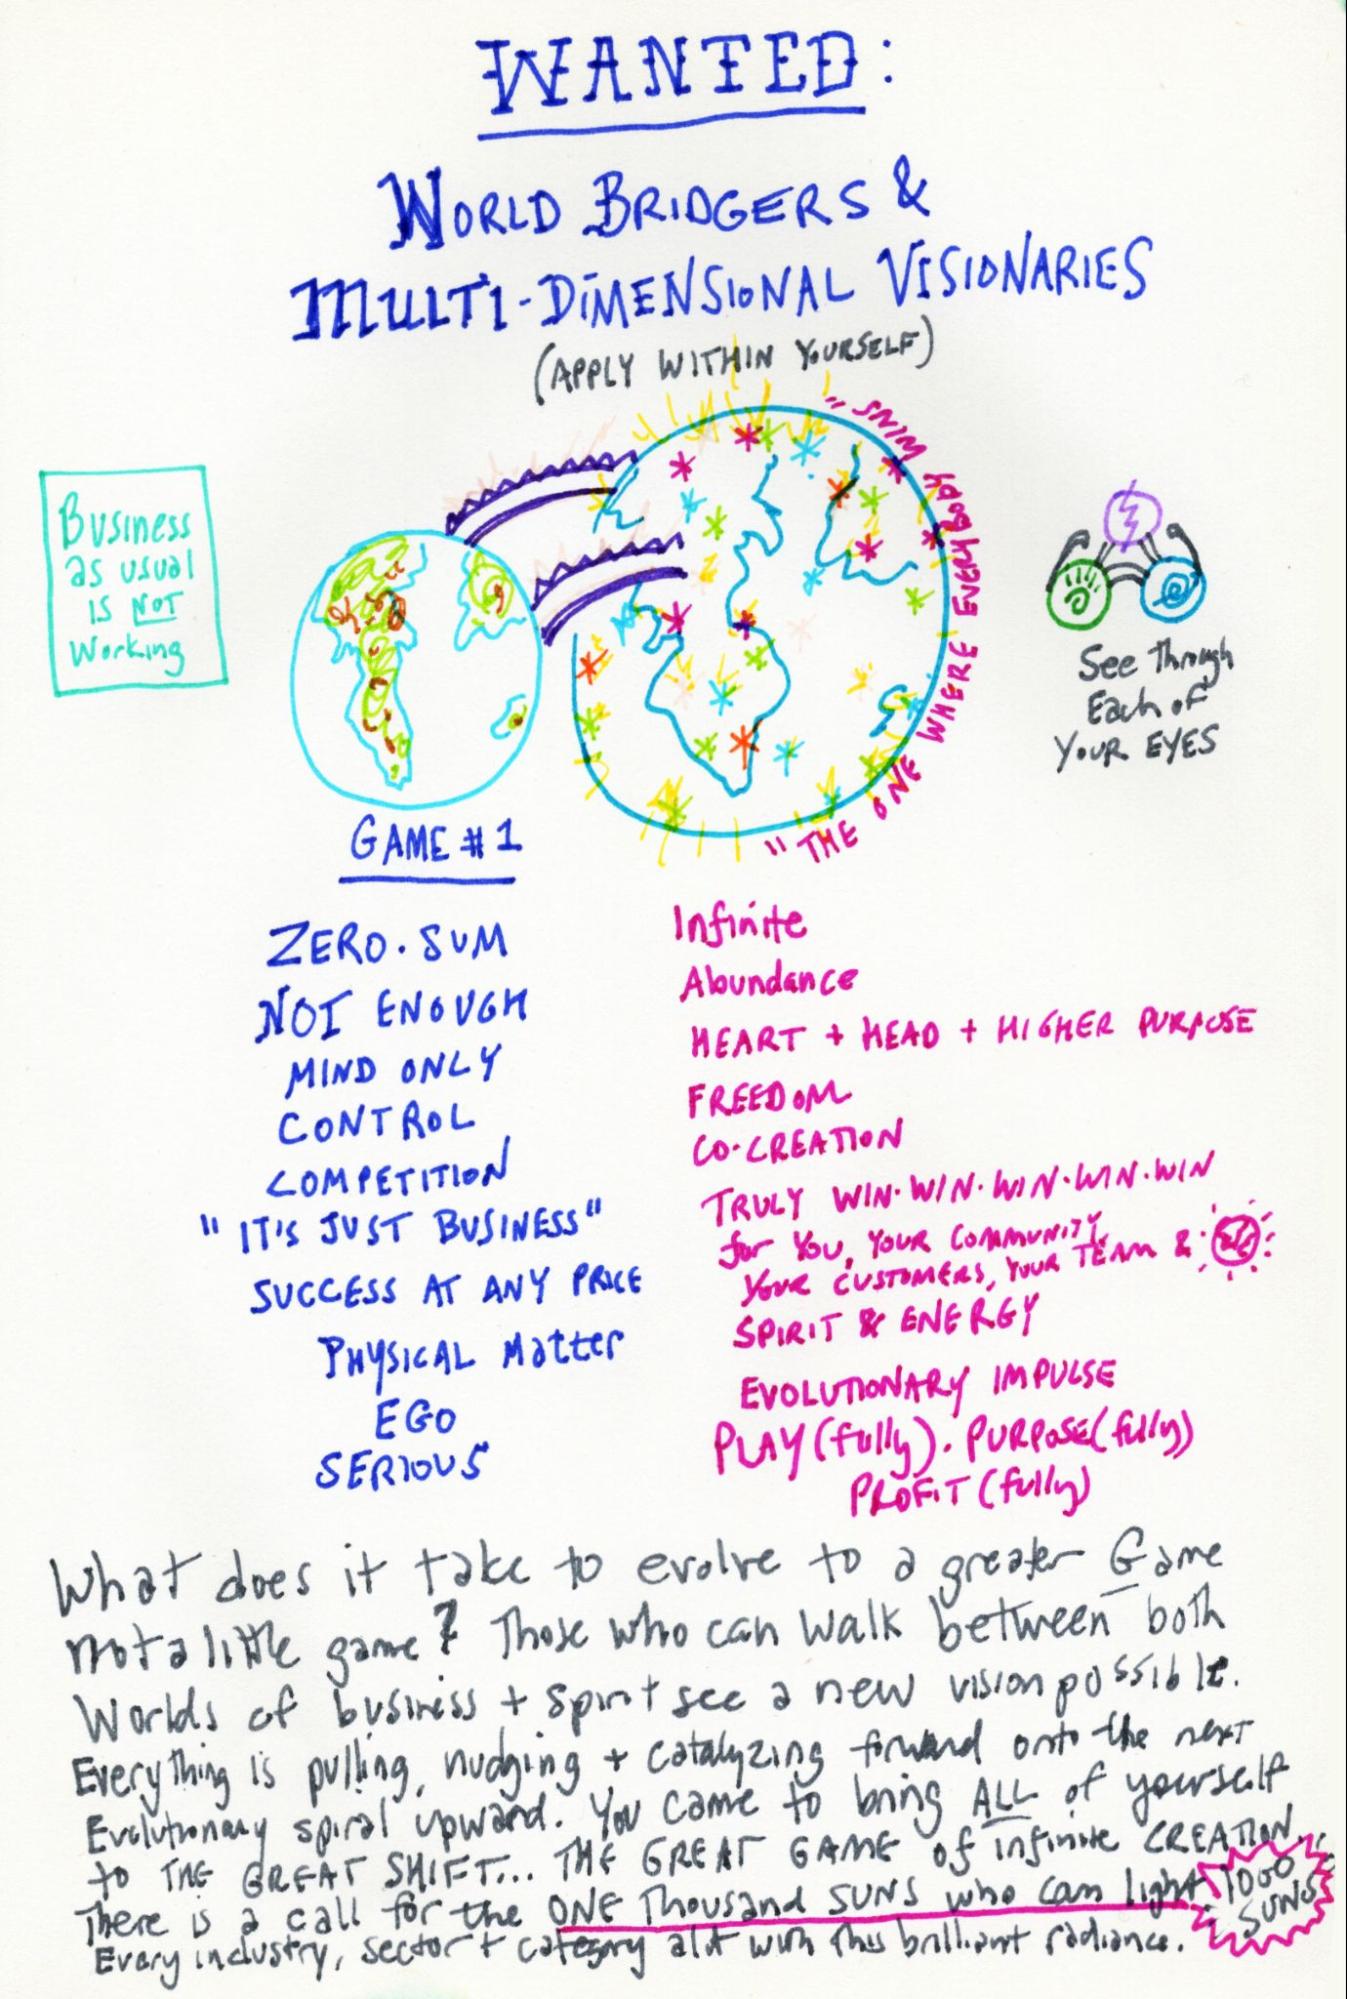 WANTED:
WORLD BRIDGERS &
MULTI-DIMENSIONAL VISIONARIES
(APPLY WITHIN YOURSELF)
Business
as usual
is NOT
Working
"THE ONE WHERE EVERYBODY WINS"
See Through
Each of
YOUR EYES
GAME #1
ZERO.SUM
NOT ENOUGH
MIND ONLY
CONTROL
COMPETITION
"IT'S JUST BUSINESS"
SUCCESS AT ANY PRICE
PHYSICAL Matter
EGO
SERIOUS
Infinite
Abundance
HEART + HEAD + HIGHER PURPOSE
FREEDOM
CO-CREATION
TRULY WIN·WIN·WIN·WIN·WIN
for YOU, YOUR COMMUNITY,
YOUR CUSTOMERS, YOUR TEAM &
SPIRIT & ENERGY
EVOLUTIONARY IMPULSE
PLAY(fully). PURPOSE(fully)
PROFIT(fully)
What does it take to evolve to a greater Game
not a little game? Those who can walk between both
Worlds of business + spirit see a new vision possible.
Everything is pulling, nudging + catalyzing forward onto the next
Evolutionary spiral upward. You came to bring ALL of yourself
to THE GREAT SHIFT... THE GREAT GAME of infinite CREATION.
There is a call for the ONE Thousand SUNS who can light
Every industry, sector + category alit with this brilliant radiance.
1000
SUNS